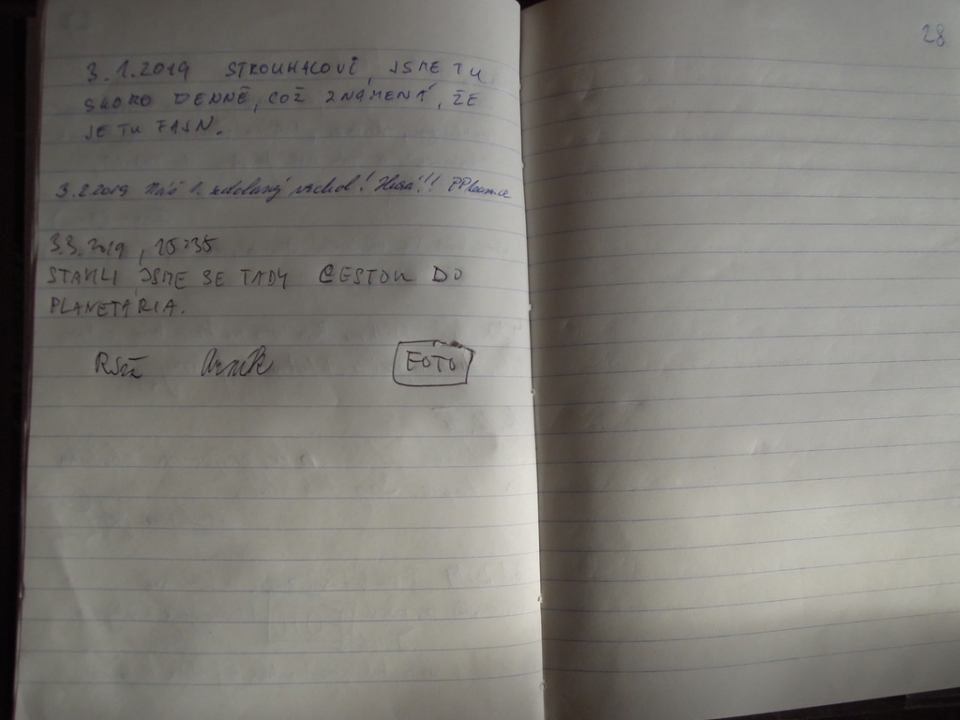 28
3.1.2019 STROUHALOVI, JSME TU
SKORO DENNĚ, COŽ ZNAMENÁ, ŽE
JE TU FAJN.
3.2.2019 Náš 1. zdolaný vrchol! Hurá!!!
3.3.2019, 15:35
STAVILI JSME SE TADY CESTOU DO
PLANETÁRIA.
FOTO